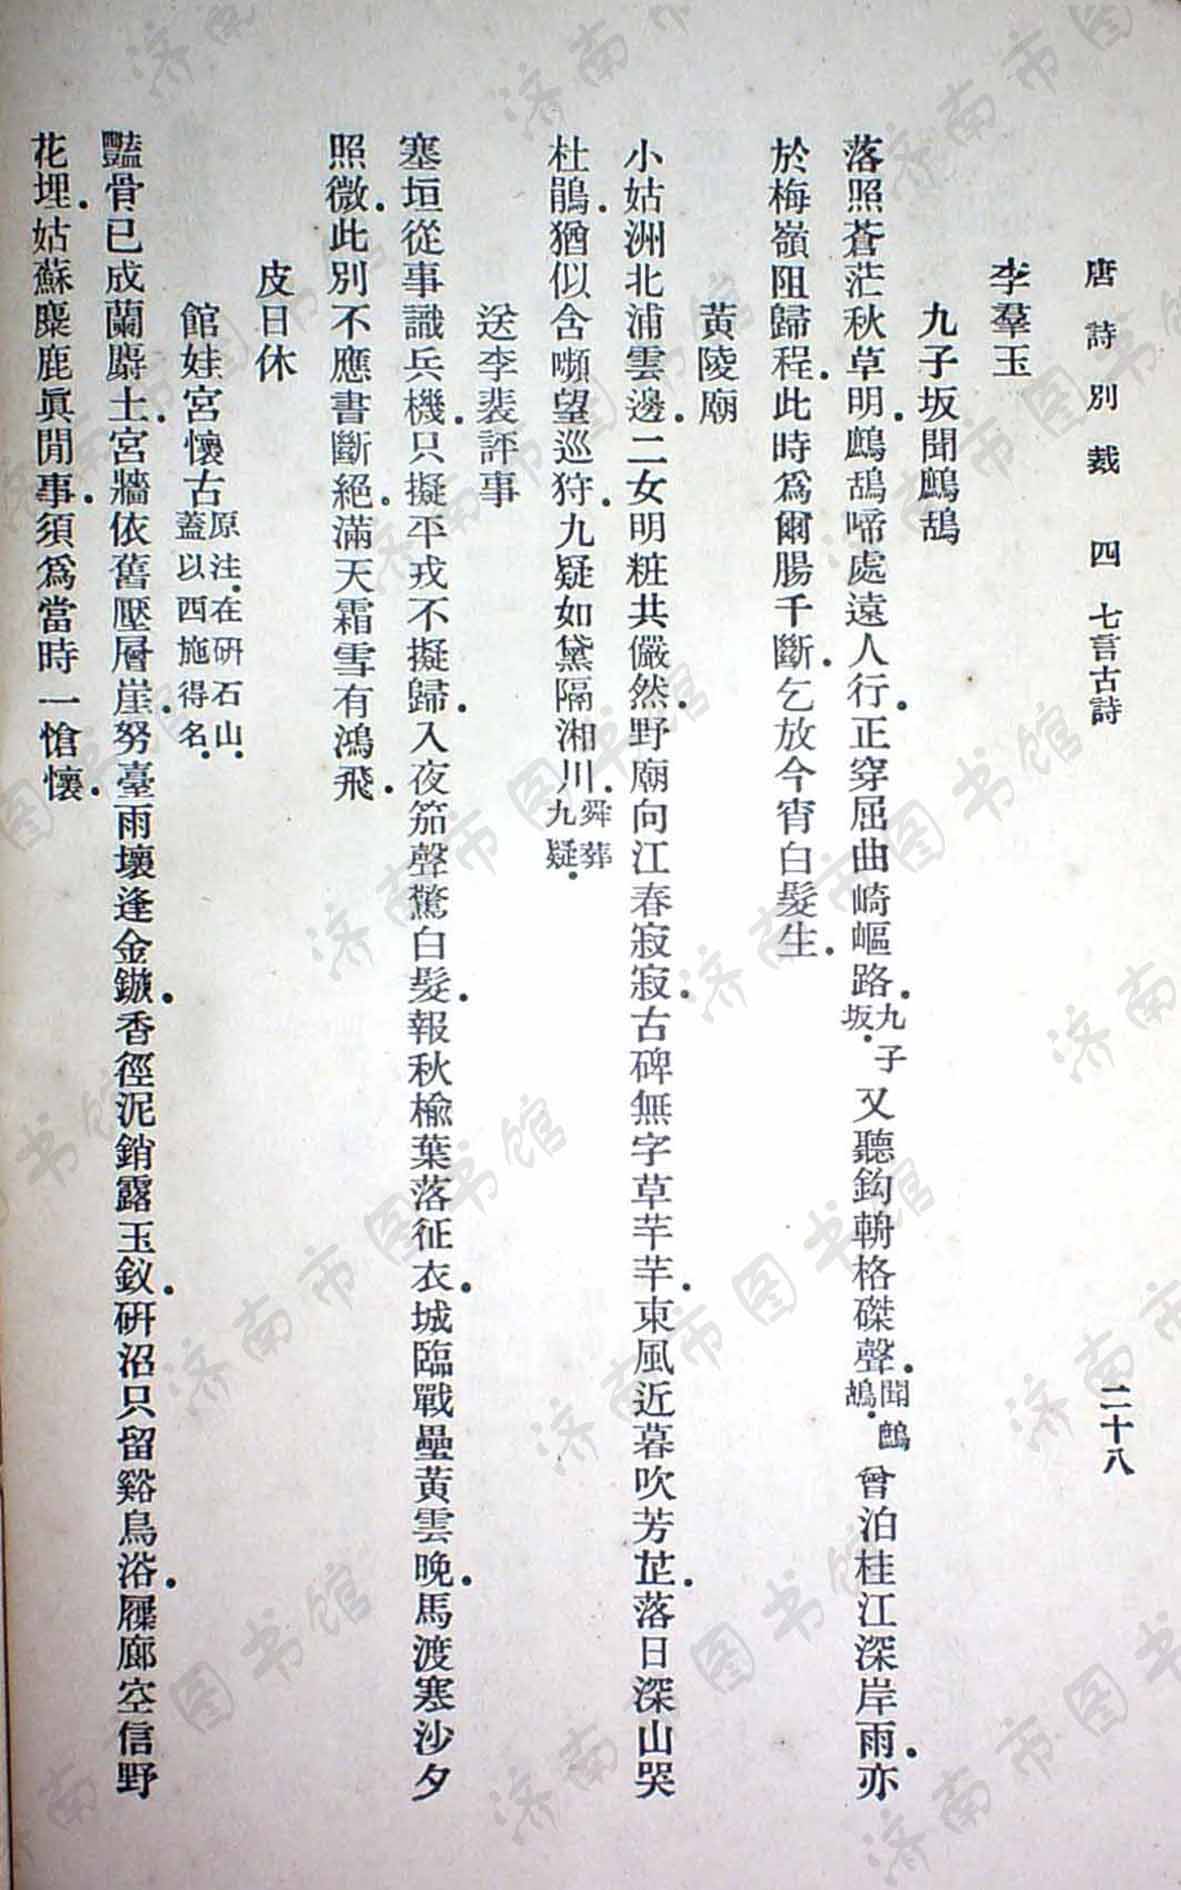 唐詩別裁 四 七言古詩 二十八
李羣玉
九子坂聞鷓鴣
落照蒼茫秋草明．鷓鴣啼處遠人行．正穿屈曲崎嶇路．九子坂．又聽鈎輈格磔聲．聞鷓鴣．曾泊桂江深岸雨．亦
於梅嶺阻歸程．此時爲爾腸千斷．乞放今宵白髮生．
黃陵廟
小姑洲北浦雲邊．二女明粧共儼然．野廟向江春寂寂．古碑無字草芊芊．東風近暮吹芳芷．落日深山哭
杜鵑．猶似含嚬望巡狩．九疑如黛隔湘川．舜葬九疑．
送李裴評事
塞垣從事識兵機．只擬平戎不擬歸．入夜笳聲驚白髮．報秋榆葉落征衣．城臨戰壘黃雲晚．馬渡寒沙夕
照微．此別不應書斷絕。滿天霜雪有鴻飛．
皮日休
館娃宮懷古原注．在硏石山．蓋以西施得名．
豔骨已成蘭麝土．宮牆依舊壓層崖．努臺雨壞逢金鏃．香徑泥銷露玉釵．硏沼只留谿鳥浴．屧廊空信野
花埋．姑蘇麋鹿眞閒事．須爲當時一愴懷．
济南市图书馆